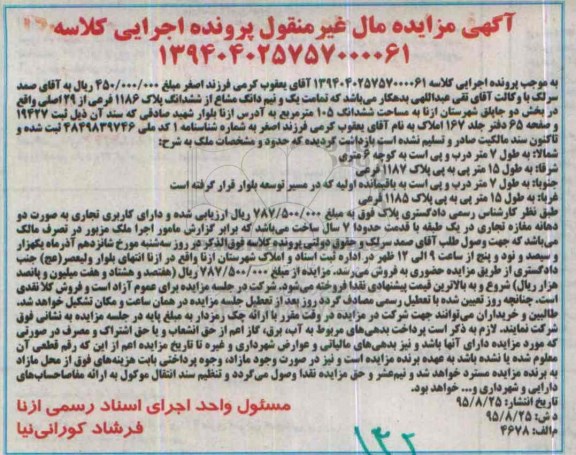 آگهی مزایده مال غیرمنقول پرونده اجرایی کلاسه
۱۳۹۴۰۴۰۲۵۷۵۷۰۰۰۰۶۱
به موجب پرونده اجرایی کلاسه ۱۳۹۴۰۴۰۲۵۷۵۷۰۰۰۰۶۱ آقای یعقوب کرمی فرزند اصغر مبلغ ۴۵۰/۰۰۰/۰۰۰ ریال به آقای صمد
سرلک با وکالت آقای تقی عبداللهی بدهکار می‌باشد که تمامت یک و نیم دانگ مشاع از ششدانگ پلاک ۱۱۸۶ فرعی از ۲۹ اصلی واقع
در بخش دو جاپلق شهرستان ازنا به مساحت ششدانگ ۱۰۵ مترمربع به آدرس ازنا بلوار شهید صادقی که سند آن ذیل ثبت ۱۹۴۲۷
و صفحه ۶۵ دفتر جلد ۱۶۷ املاک به نام آقای یعقوب کرمی فرزند اصغر به شماره شناسنامه ۱ کد ملی ۴۸۴۹۸۳۹۷۴۶ ثبت شده و
تاکنون سند مالکیت صادر و تسلیم نشده است بازداشت گردیده که حدود و مشخصات ملک به شرح:
شمالا: به طول ۷ متر درب و پی است به کوچه ۶ متری
شرقا: به طول ۱۵ متر پی به پی پلاک ۱۱۸۷ فرعی
جنوبا: به طول ۷ متر درب و پی است به باقیمانده اولیه که در مسیر توسعه بلوار قرار گرفته است
غربا: به طول ۱۵ متر پی به پی پلاک ۱۱۸۵ فرعی
طبق نظر کارشناس رسمی دادگستری پلاک فوق به مبلغ ۷۸۷/۵۰۰/۰۰۰ ریال ارزیابی شده و دارای کاربری تجاری به صورت دو
دهانه مغازه تجاری در یک طبقه با قدمت حدودا ۷ سال ساخت می‌باشد که برابر گزارش مامور اجرا ملک مزبور در تصرف مالک
می‌باشد که جهت وصول طلب آقای صمد سرلک و حقوق دولتی پرونده کلاسه فوق‌الذکر در روز سه‌شنبه مورخ شانزدهم آذرماه یکهزار
و سیصد و نود و پنج از ساعت ۹ الی ۱۲ ظهر در اداره ثبت اسناد و املاک شهرستان ازنا واقع در ازنا انتهای بلوار ولیعصر(عج) جنب
دادگستری از طریق مزایده حضوری به فروش می‌رسد. مزایده از مبلغ ۷۸۷/۵۰۰/۰۰۰ ریال (هفتصد و هشتاد و هفت میلیون و پانصد
هزار ریال) شروع و به بالاترین قیمت پیشنهادی نقدا فروخته می‌شود. شرکت در جلسه مزایده برای عموم آزاد است و فروش کلا نقدی
است. چنانچه روز تعیین شده با تعطیل رسمی مصادف گردد روز بعد از تعطیل جلسه مزایده در همان ساعت و مکان تشکیل خواهد شد.
طالبین و خریداران می‌توانند جهت شرکت در مزایده در وقت مقرر با ارائه چک رمزدار به مبلغ پایه در جلسه مزایده به نشانی فوق
شرکت نمایند. لازم به ذکر است پرداخت بدهی‌های مربوط به آب، برق، گاز اعم از حق انشعاب و یا حق اشتراک و مصرف در صورتی
که مورد مزایده دارای آنها باشد و نیز بدهی‌های مالیاتی و عوارض شهرداری و غیره تا تاریخ مزایده اعم از این که رقم قطعی آن
معلوم شده یا نشده باشد به عهده برنده مزایده است و نیز در صورت وجود مازاد، وجوه پرداختی بابت هزینه‌های فوق از محل مازاد
به برنده مزایده مسترد خواهد شد و نیم‌عشر و حق مزایده نقدا وصول می‌گردد و تنظیم سند انتقال موکول به ارائه مفاصاحساب‌های
دارایی و شهرداری و... خواهد بود.
تاریخ انتشار: ۹۵/۸/۲۵
د ش: ۹۵/۸/۲۵
م الف: ۴۶۷۸
مسئول واحد اجرای اسناد رسمی ازنا
فرشاد کورانی‌نیا
۱۳۲